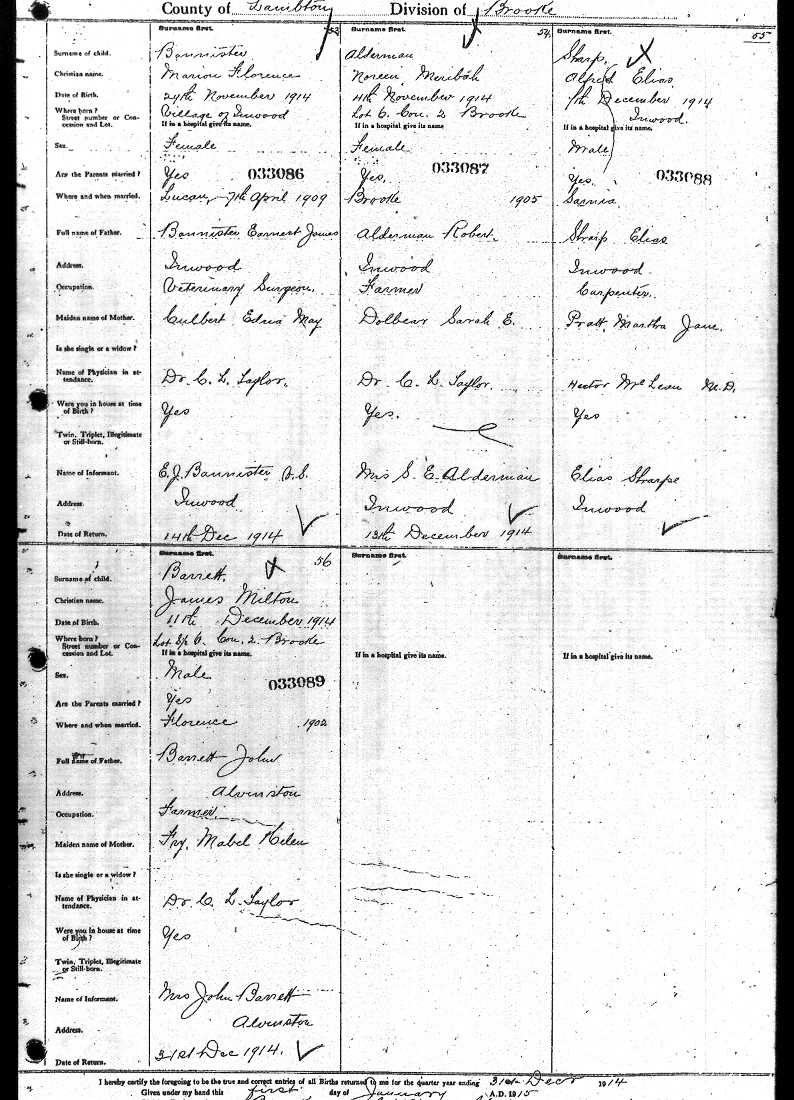 County of Lambton Division of Brooke
Surname first. 53 Surname first. 54 Surname first. 55
Surname of child. Bannister Alderman Sharp.
Christian name. Marion Florence Noreen Meribah Alfred Elias
Date of Birth. 24th November 1914 4th November 1914 7th December 1914
Where born? Street number or Concession and Lot. Village of Inwood Lot 6. Con. 2 Brooke Inwood.
If in a hospital give its name. If in a hospital give its name If in a hospital give its name.
Sex. Female Female Male
Are the Parents married? Yes 033086 Yes. 033087 Yes. 033088
Where and when married. Lucan, 7th April 1909 Brooke 1905 Sarnia
Full name of Father. Bannister Earnest James Alderman Robert. Sharp Elias
Address. Inwood Inwood Inwood
Occupation. Veterinary Surgeon. Farmer Carpenter.
Maiden name of Mother. Culbert Edna May Dolbear Sarah E. Pratt, Martha Jane.
Is she single or a widow?
Name of Physician in attendance. Dr. C. L. Taylor. Dr. C. L. Taylor. Hector McLean M.D.
Were you in house at time of Birth? Yes Yes. Yes
Twin, Triplet, Illegitimate or Still-born.
Name of Informant. E. J. Bannister V.S. Mrs S. E. Alderman Elias Sharpe
Address. Inwood Inwood Inwood
Date of Return. 14th Dec 1914 13th December 1914
Surname first. 56 Surname first. Surname first.
Surname of child. Barrett.
Christian name. James Milton
Date of Birth. 11th December 1914
Where born? Street number or Concession and Lot. Lot 6. Con. 2. Brooke
If in a hospital give its name. If in a hospital give its name. If in a hospital give its name.
Sex. Male
Are the Parents married? Yes 033089
Where and when married. Florence 1902
Full name of Father. Barrett John
Address. Alvinston
Occupation. Farmer.
Maiden name of Mother. Fry, Mabel Helen
Is she single or a widow?
Name of Physician in attendance. Dr. C. L. Taylor
Were you in house at time of Birth? Yes
Twin, Triplet, Illegitimate or Still-born.
Name of Informant. Mrs John Barrett
Address. Alvinston
Date of Return. 31st Dec 1914.
I hereby certify the foregoing to be the true and correct entries of all Births returned to me for the quarter year ending 31st Decr 1914
Given under my hand this first day of January A.D. 1915